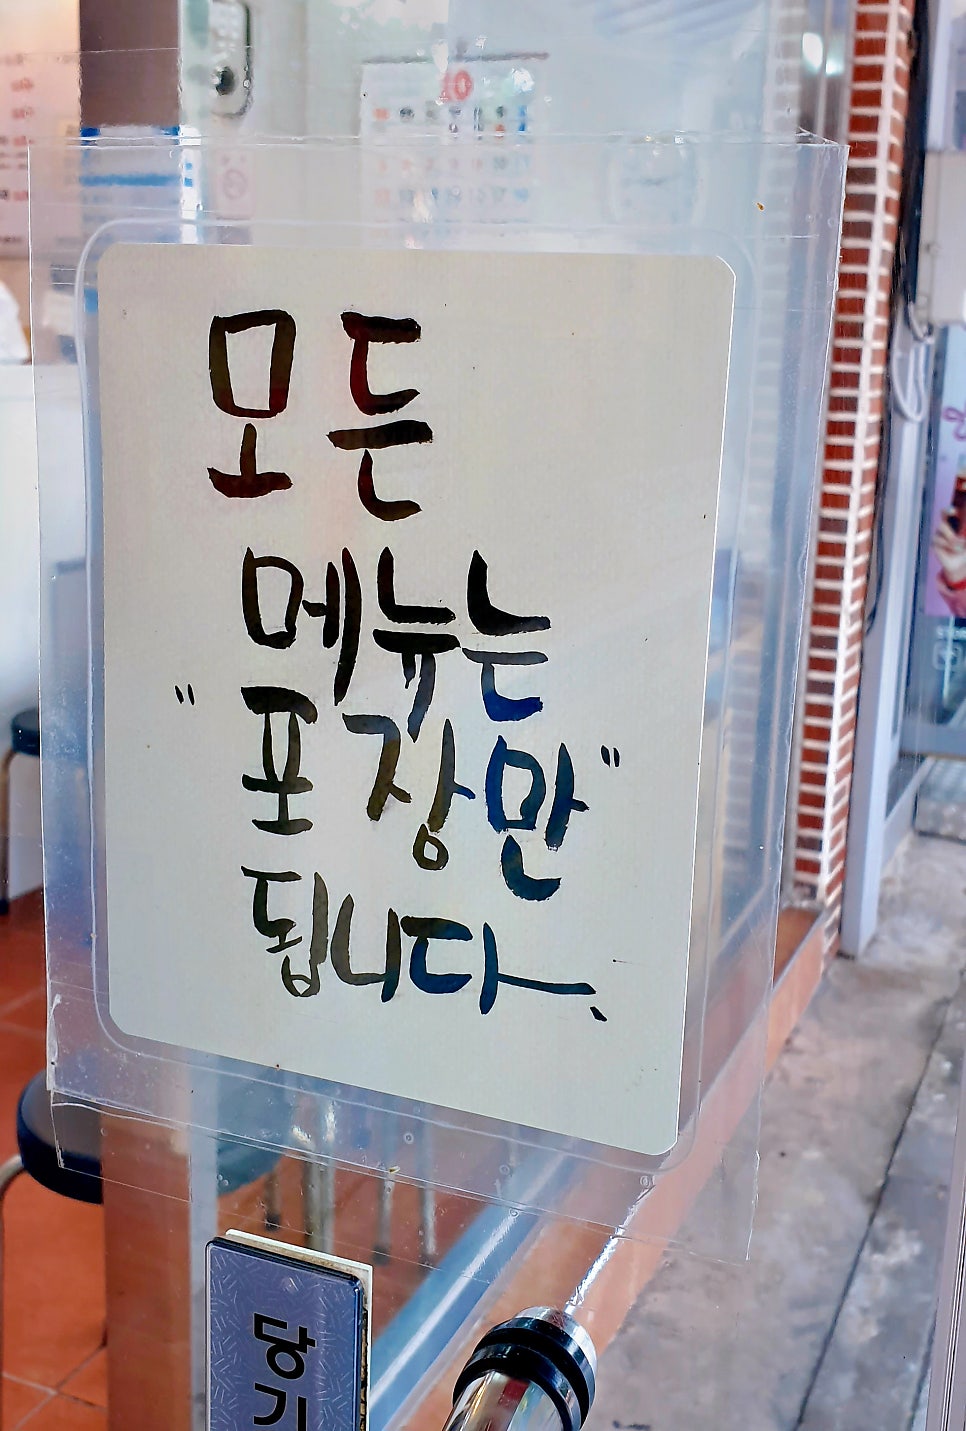 모든
메뉴는
"포장만"
됩니다.
당기